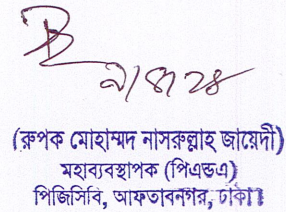 (রুপক মোহাম্মদ নাসরুল্লাহ জায়েদী)
মহাব্যবস্থাপক (পিএন্ডএ)
পিজিসিবি, আফতাবনগর, ঢাকা।